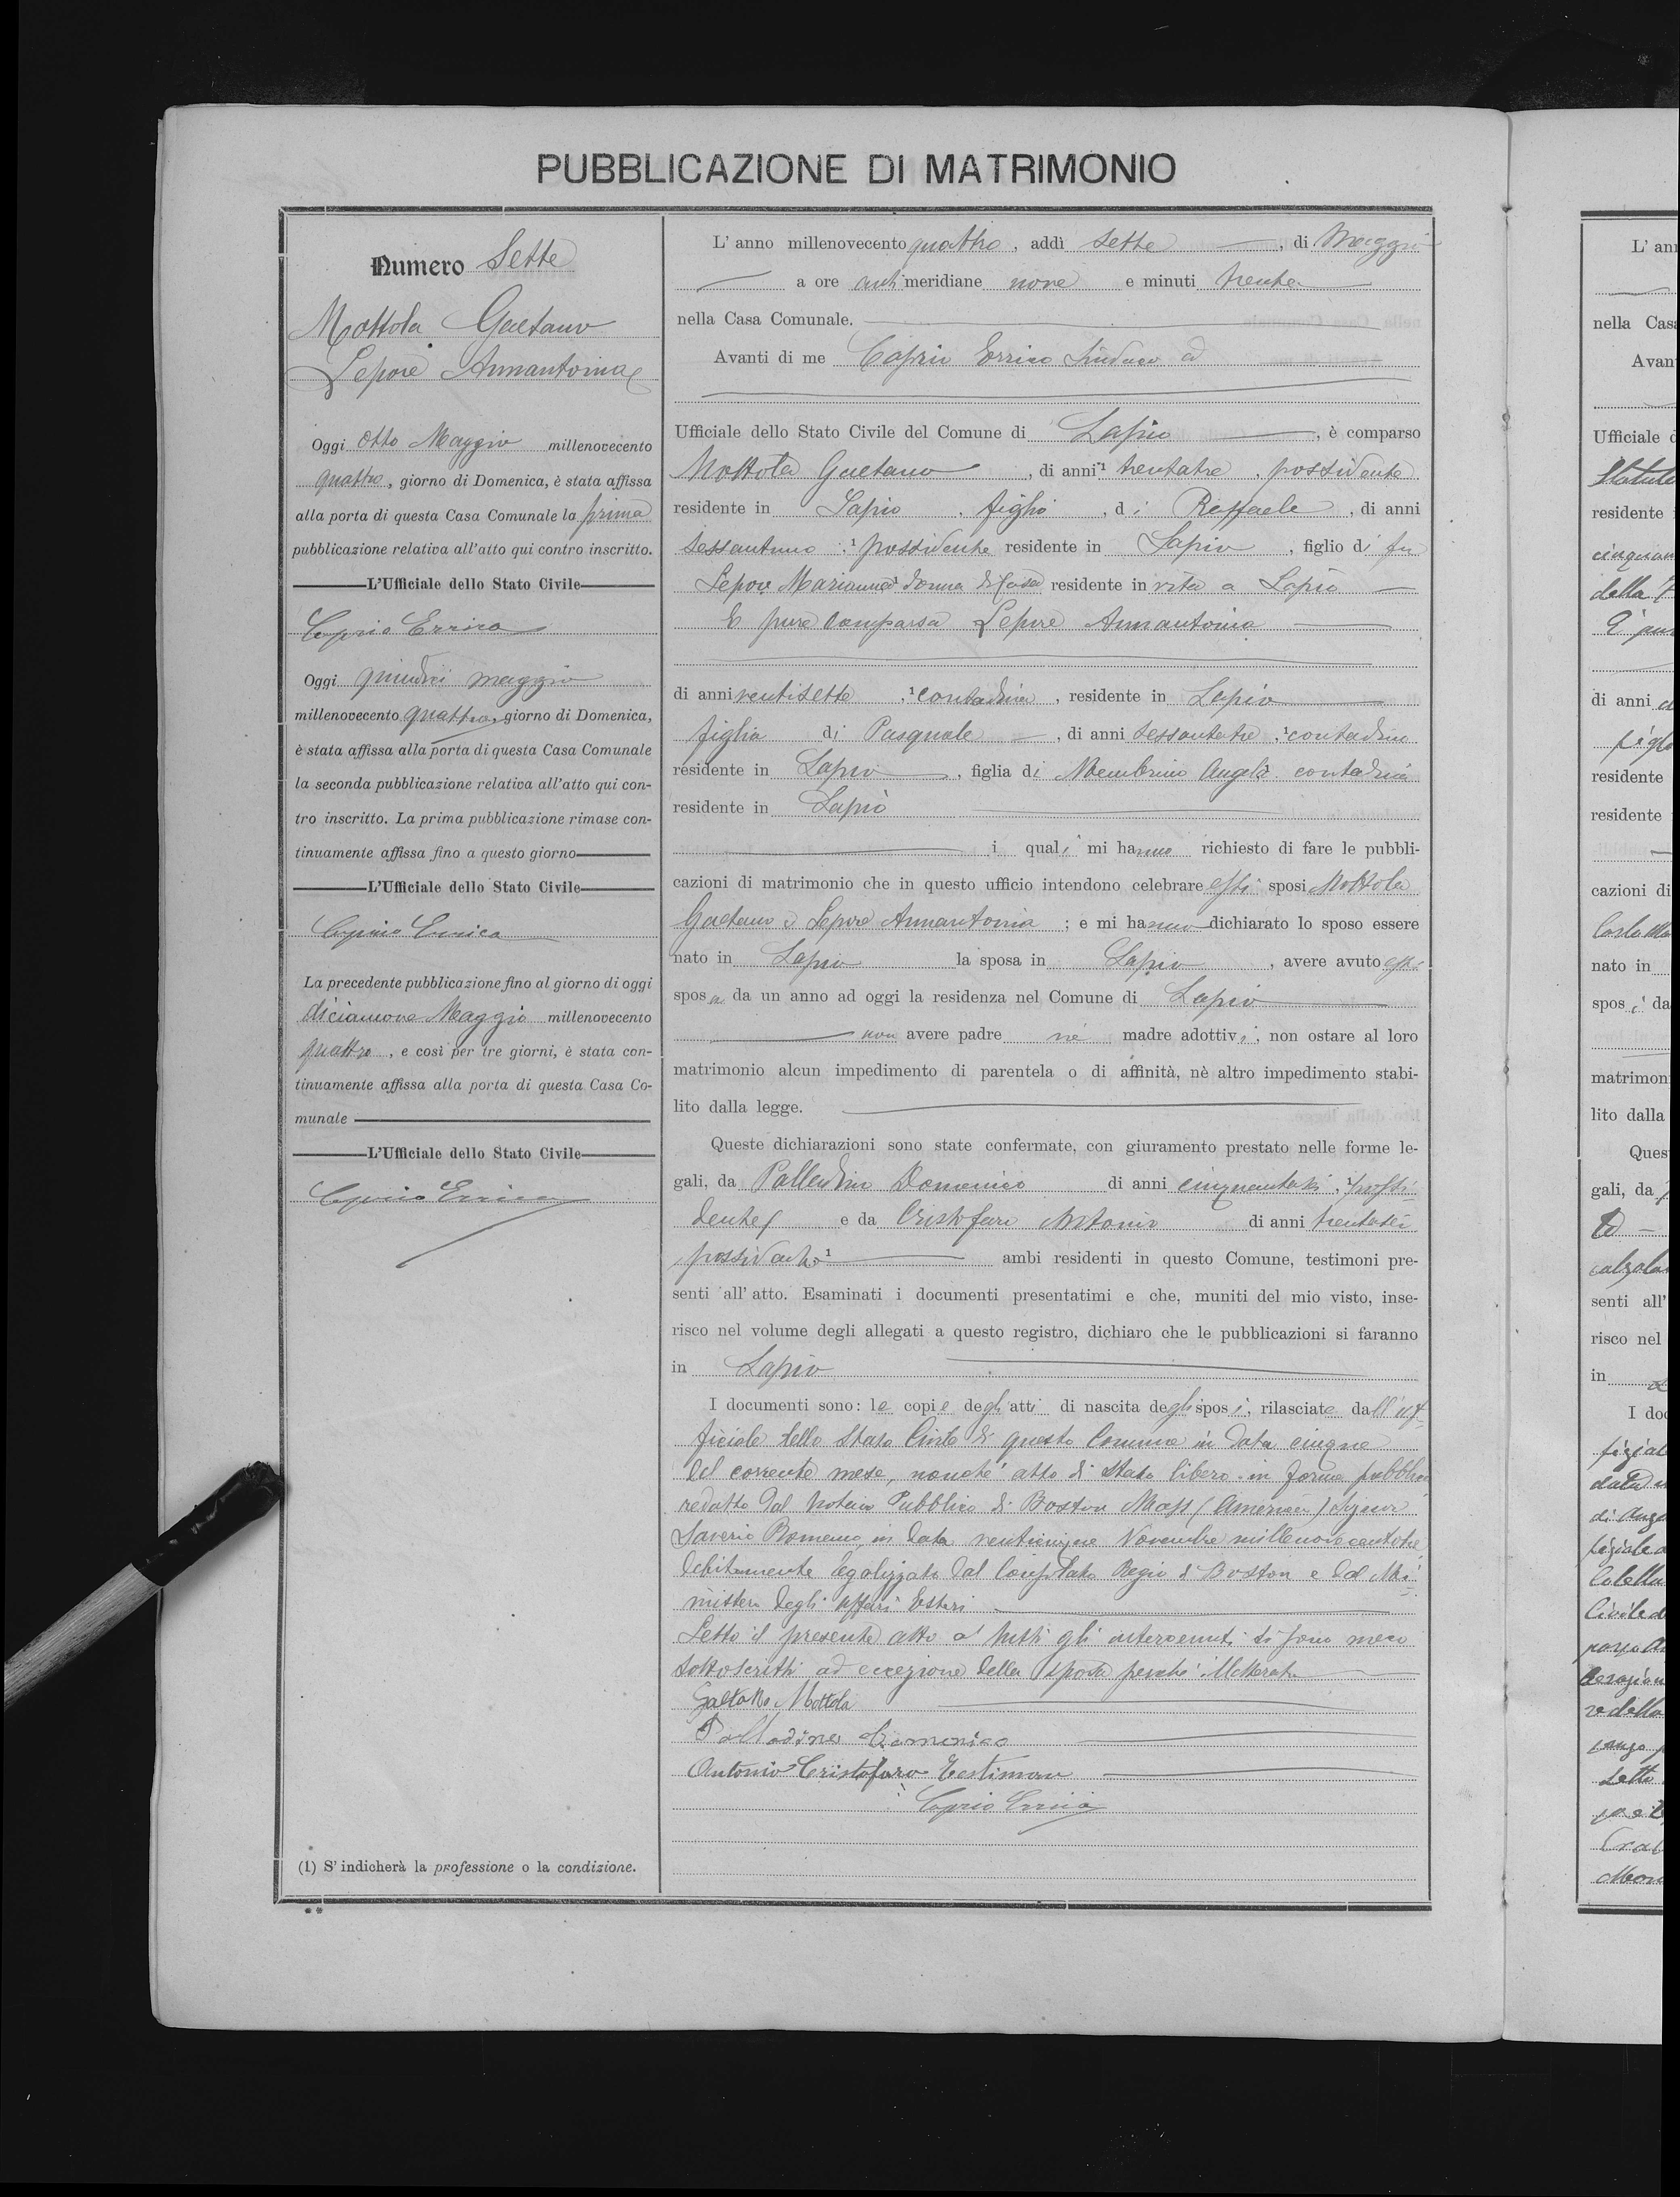 PUBBLICAZIONE DI MATRIMONIO
Numero Sette
Mottola Gaetano
Lepore Annantonia
Oggi otto Maggio millenovecento
quattro, giorno di Domenica, è stata affissa
alla porta di questa Casa Comunale la prima
pubblicazione relativa all'atto qui contro inscritto.
L'Ufficiale dello Stato Civile
Caprio Errico
Oggi quindici maggio
millenovecento quattro, giorno di Domenica,
è stata affissa alla porta di questa Casa Comunale
la seconda pubblicazione relativa all'atto qui con-
tro inscritto. La prima pubblicazione rimase con-
tinuamente affissa fino a questo giorno
L'Ufficiale dello Stato Civile
Caprio Errico
La precedente pubblicazione fino al giorno di oggi
diciannove Maggio millenovecento
quattro, e così per tre giorni, è stata con-
tinuamente affissa alla porta di questa Casa Co-
munale
L'Ufficiale dello Stato Civile
Caprio Errico
(1) S'indicherà la professione o la condizione.
L'anno millenovecento quattro, addì sette, di Maggio
a ore antimeridiane nove e minuti trenta
nella Casa Comunale.
Avanti di me Caprio Errico Sindaco ed
Ufficiale dello Stato Civile del Comune di Lapio, è comparso
Mottola Gaetano, di anni 1 trentatre, possidente
residente in Lapio, figlio, di Raffaele, di anni
sessantuno, 1 possidente residente in Lapio, figlio di fu
Lepore Marianna donna di Casa residente in vita a Lapio
È pure comparsa Lepore Annantonia
di anni ventisette, 1 contadina, residente in Lapio
figlia di Pasquale, di anni sessantatre, 1 contadino
residente in Lapio, figlia di Membrino Angela contadina
residente in Lapio
i quali mi hanno richiesto di fare le pubbli-
cazioni di matrimonio che in questo ufficio intendono celebrare essi sposi Mottola
Gaetano e Lepore Annantonia; e mi hanno dichiarato lo sposo essere
nato in Lapio la sposa in Lapio, avere avuto essi
sposi da un anno ad oggi la residenza nel Comune di Lapio
non avere padre nè madre adottivi, non ostare al loro
matrimonio alcun impedimento di parentela o di affinità, nè altro impedimento stabi-
lito dalla legge.
Queste dichiarazioni sono state confermate, con giuramento prestato nelle forme le-
gali, da Palladino Domenico di anni cinquantasei, possi-
dente e da Cristofaro Antonio di anni trentasei
possidente 1 ambi residenti in questo Comune, testimoni pre-
senti all'atto. Esaminati i documenti presentatimi e che, muniti del mio visto, inse-
risco nel volume degli allegati a questo registro, dichiaro che le pubblicazioni si faranno
in Lapio
I documenti sono: le copie degli atti di nascita degli sposi, rilasciate dall'uf-
ficiale dello Stato Civile di questo Comune in data cinque
del corrente mese, nonchè atto di stato libero in forma pubblica
redatto dal Notaio Pubblico di Boston Mass (America) Signor
Saverio Romano, in data venticinque Novembre millenovecentotre
debitamente legalizzato dal Consolato Regio di Boston e dal Mi-
nistero degli affari Esteri
Letto il presente atto a tutti gli intervenuti si sono meco
sottoscritti ad eccezione della sposa perchè illetterata
Gaetano Mottola
Palladino Domenico
Antonio Cristofaro Testimone
Caprio Errico
L'an
nella Cas
Avan
Ufficiale d
residente
della
di anni
residente
residente
cazioni di
nato in
sposi da
matrimon
lito dalla
Ques
gali, da
senti all'
risco nel
in
I do